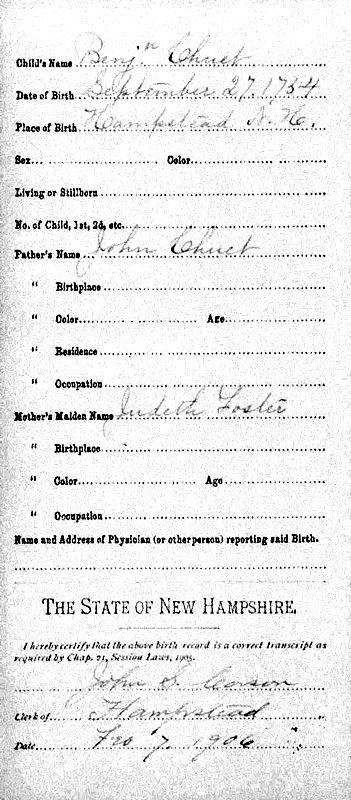 Child's Name Benjn Chuet
Date of Birth September 27, 1754
Place of Birth Hampstead N. H.
Sex Color
Living or Stillborn
No. of Child, 1st, 2d, etc.
Father's Name John Chuet
" Birthplace
" Color Age
" Residence
" Occupation
Mother's Maiden Name Judeth Foster
" Birthplace
" Color Age
" Occupation
Name and Address of Physician (or other person) reporting said Birth.
THE STATE OF NEW HAMPSHIRE.
I hereby certify that the above birth record is a correct transcript as
required by Chap. 21, Session Laws, 1905.
John S. Corson
Clerk of Hampstead
Date 7, 1906